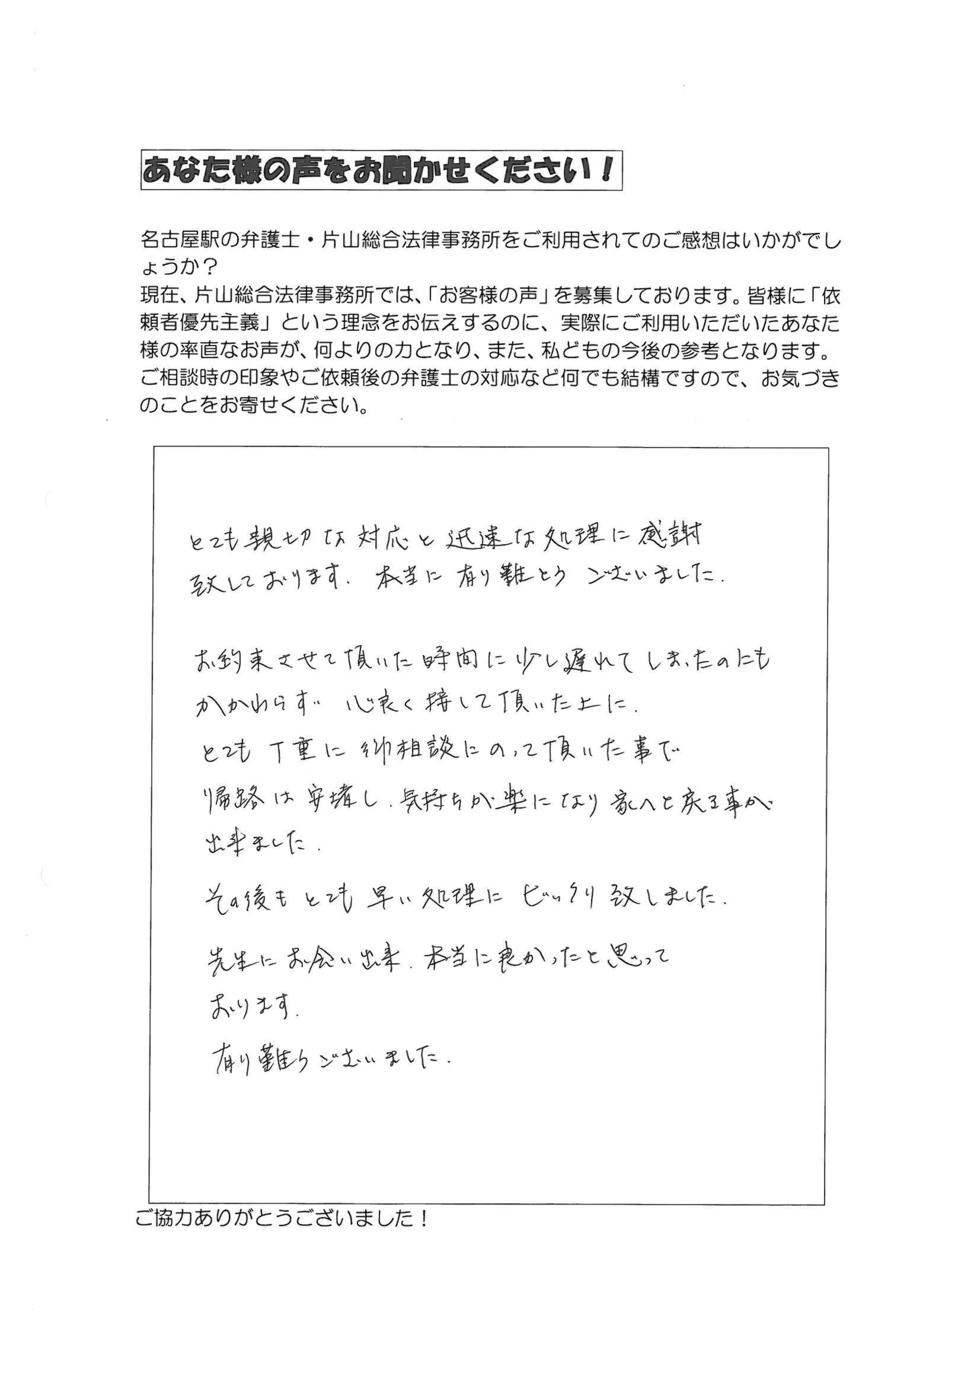 あなた様の声をお聞かせください！
名古屋駅の弁護士・片山総合法律事務所をご利用されてのご感想はいかがでし
ょうか？
現在、片山総合法律事務所では、「お客様の声」を募集しております。皆様に「依
頼者優先主義」という理念をお伝えするのに、実際にご利用いただいたあなた
様の率直なお声が、何よりの力となり、また、私どもの今後の参考となります。
ご相談時の印象やご依頼後の弁護士の対応など何でも結構ですので、お気づき
のことをお寄せください。
とても親切な対応と迅速な処理に感謝
致しております. 本当に有り難とうございました.
お約束させて頂いた時間に少し遅れてしまったのにも
かかわらず 心良く接して頂いた上に.
とても丁重に御相談にのって頂いた事で
帰路は安堵し. 気持ちが楽になり家へと戻る事が
出来ました.
その後もとても早い処理にビックリ致しました.
先生にお会い出来. 本当に良かったと思って
おります.
有り難うございました.
ご協力ありがとうございました！